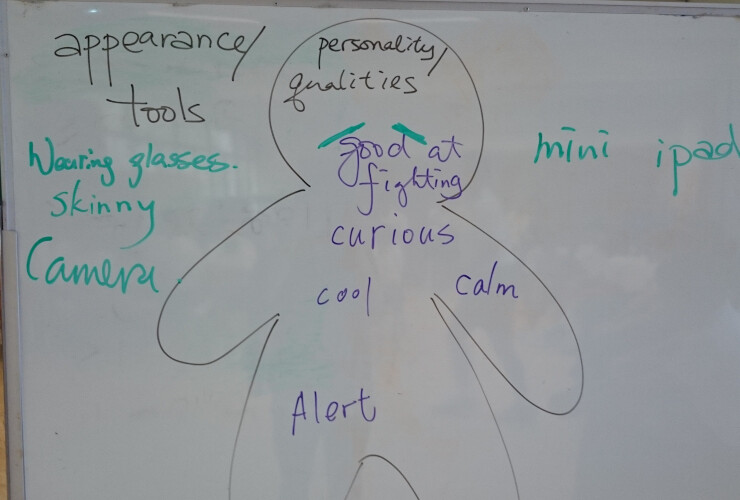 appearance/
tools
Wearing glasses.
skinny
Camera.
personality/
qualities
good at
fighting
curious
cool
calm
Alert
mini ipad